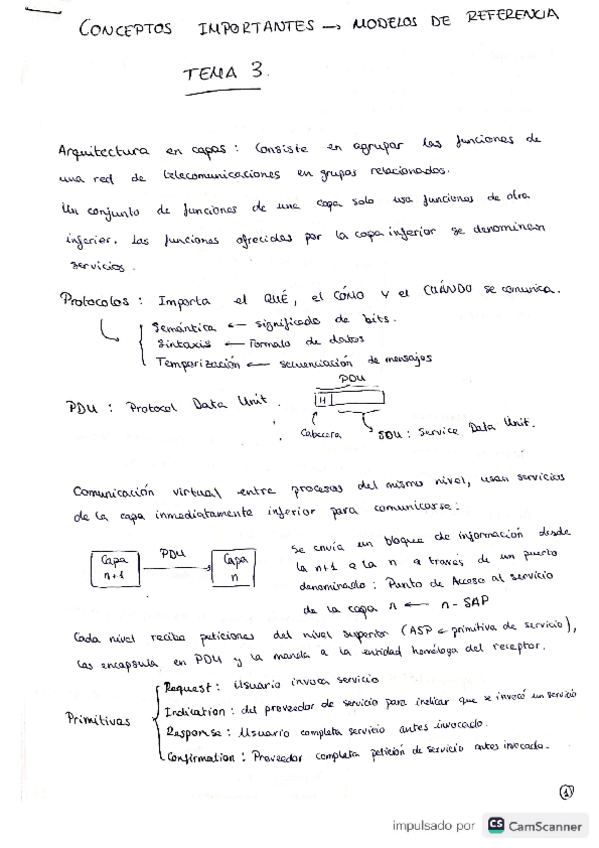 CONCEPTOS IMPORTANTES → MODELOS DE REFERENCIA
TEMA 3.
Arquitectura en capas: Consiste en agrupar las funciones de
una red de telecomunicaciones en grupos relacionados.
Un conjunto de funciones de una capa solo usa funciones de otra
inferior. Las funciones ofrecidas por la capa inferior se denominan
servicios.
Protocolos: Importa el QUÉ, el CÓMO y el CUÁNDO se comunica.
Semántica ← significado de bits.
Sintaxis ← Formato de datos
Temporización ← secuenciación de mensajes
PDU
PDU: Protocol Data Unit.
H
Cabecera
SDU: Service Data Unit.
Comunicación virtual entre procesos del mismo nivel, usan servicios
de la capa inmediatamente inferior para comunicarse:
Capa n+1
PDU
Capa n
Se envía un bloque de información desde
la n+1 a la n a través de un puerto
denominado: Punto de Acceso al servicio
de la capa n ← n-SAP
Cada nivel recibe peticiones del nivel superior (ASP ← primitiva de servicio),
las encapsula en PDU y la manda a la entidad homóloga del receptor.
Primitivas
Request: Usuario invoca servicio
Indication: del proveedor de servicio para indicar que se invocó un servicio
Response: Usuario completa servicio antes invocado.
Confirmation: Proveedor completa petición de servicio antes invocado.
1
impulsado por CS CamScanner